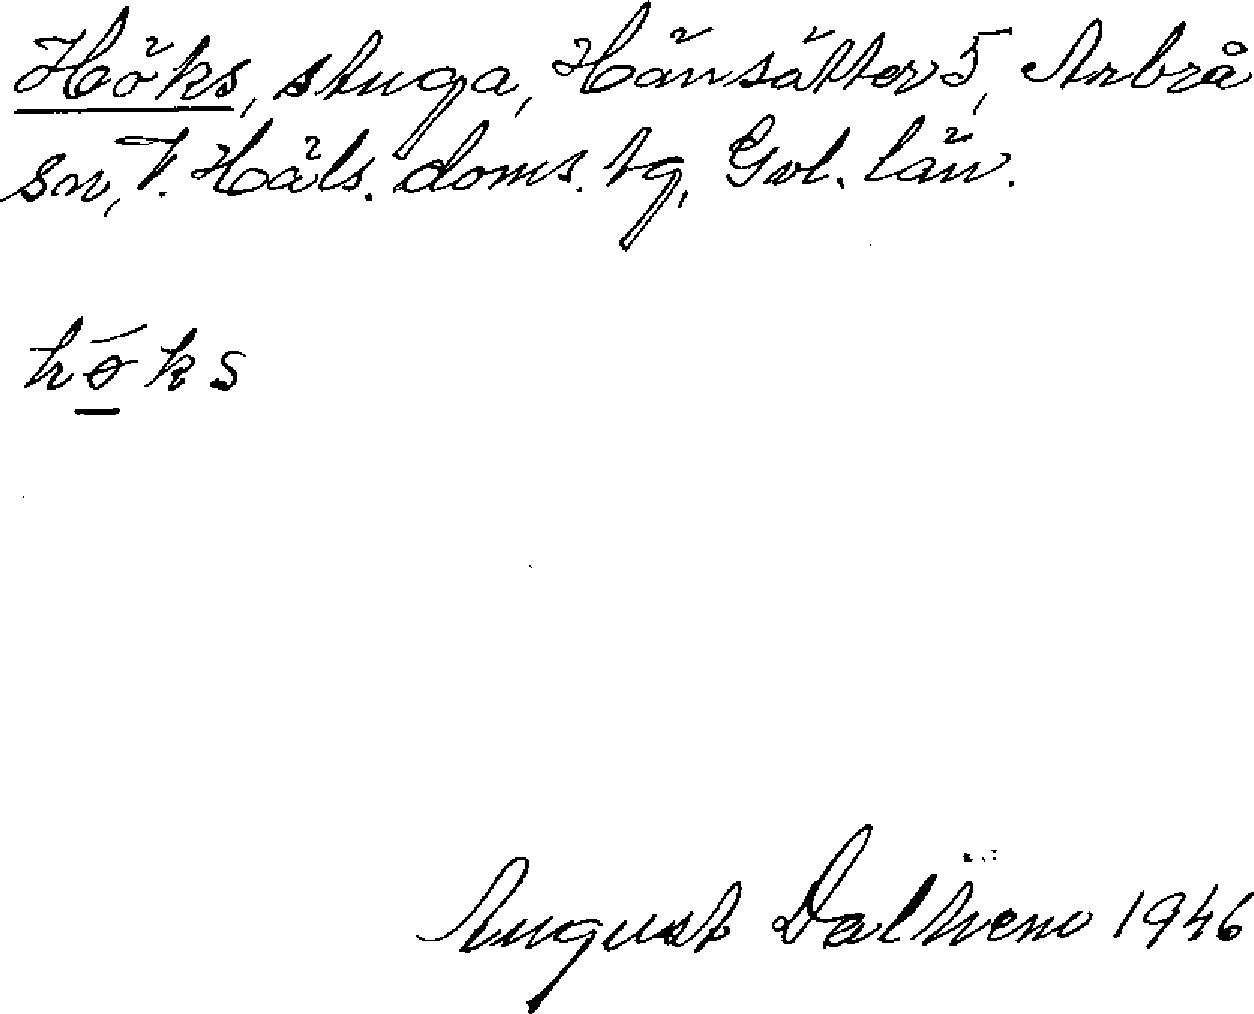 Höks, stuga, Hänsätter 5, Arbrå
sn, V. Häls. doms. tg, Gvl. län.
hö́ks
August Dalhem 1946